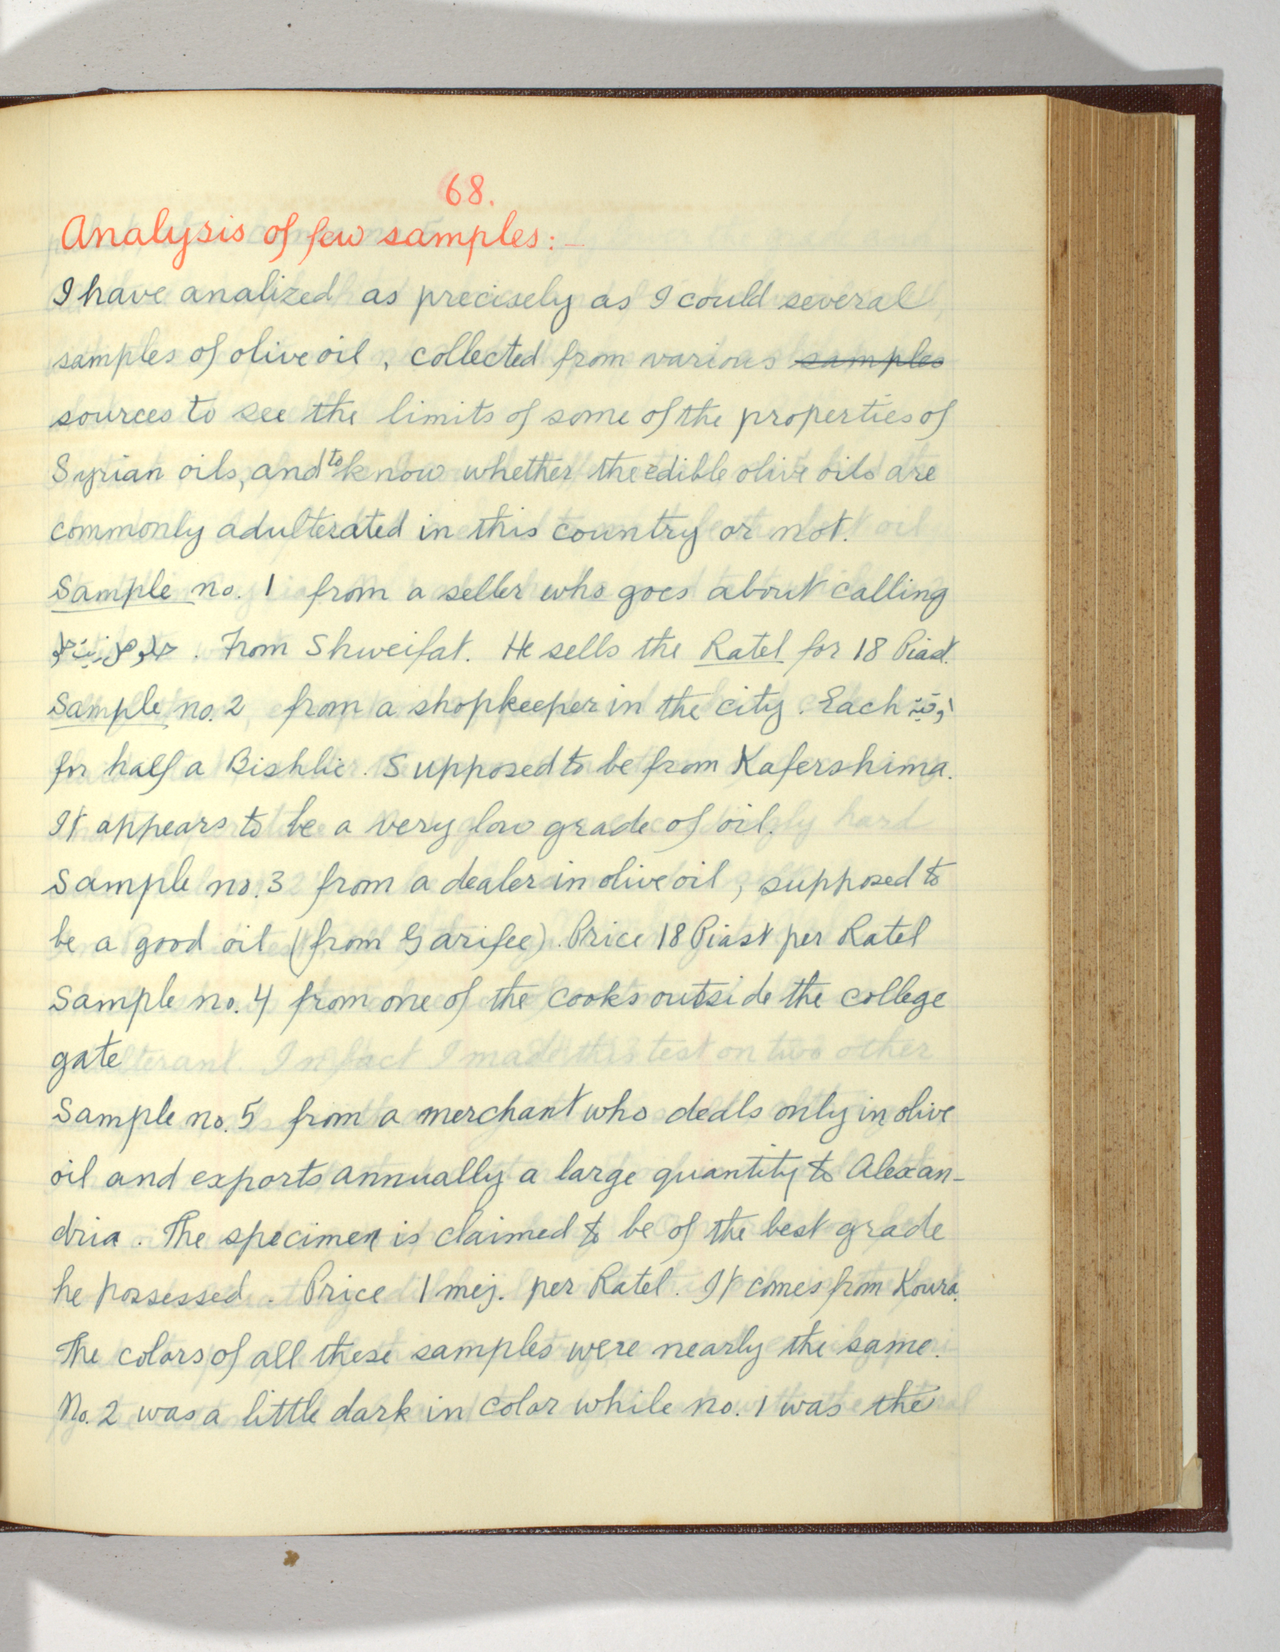 68.
Analysis of few samples:-
I have analized as precisely as I could several
samples of olive oil, collected from various samples
sources to see the limits of some of the properties of
Syrian oils, and to know whether the edible olive oils are
commonly adulterated in this country or not.
Sample no. 1 from a seller who goes about calling
. From Shweifat. He sells the Ratel for 18 Piast.
Sample no. 2 from a shopkeeper in the city. Each
for half a Bishlic. Supposed to be from Kafershima.
It appears to be a very low grade of oil.
Sample no. 3 from a dealer in olive oil, supposed to
be a good oil (from Garifee). Price 18 Piast per Ratel
Sample no. 4 from one of the cooks outside the college
gate
Sample no. 5 from a merchant who deals only in olive
oil and exports annually a large quantity to Alexan-
dria. The specimen is claimed to be of the best grade
he possessed. Price 1 mej. per Ratel. It comes from Koura.
The colors of all these samples were nearly the same.
No. 2 was a little dark in color while no. 1 was the